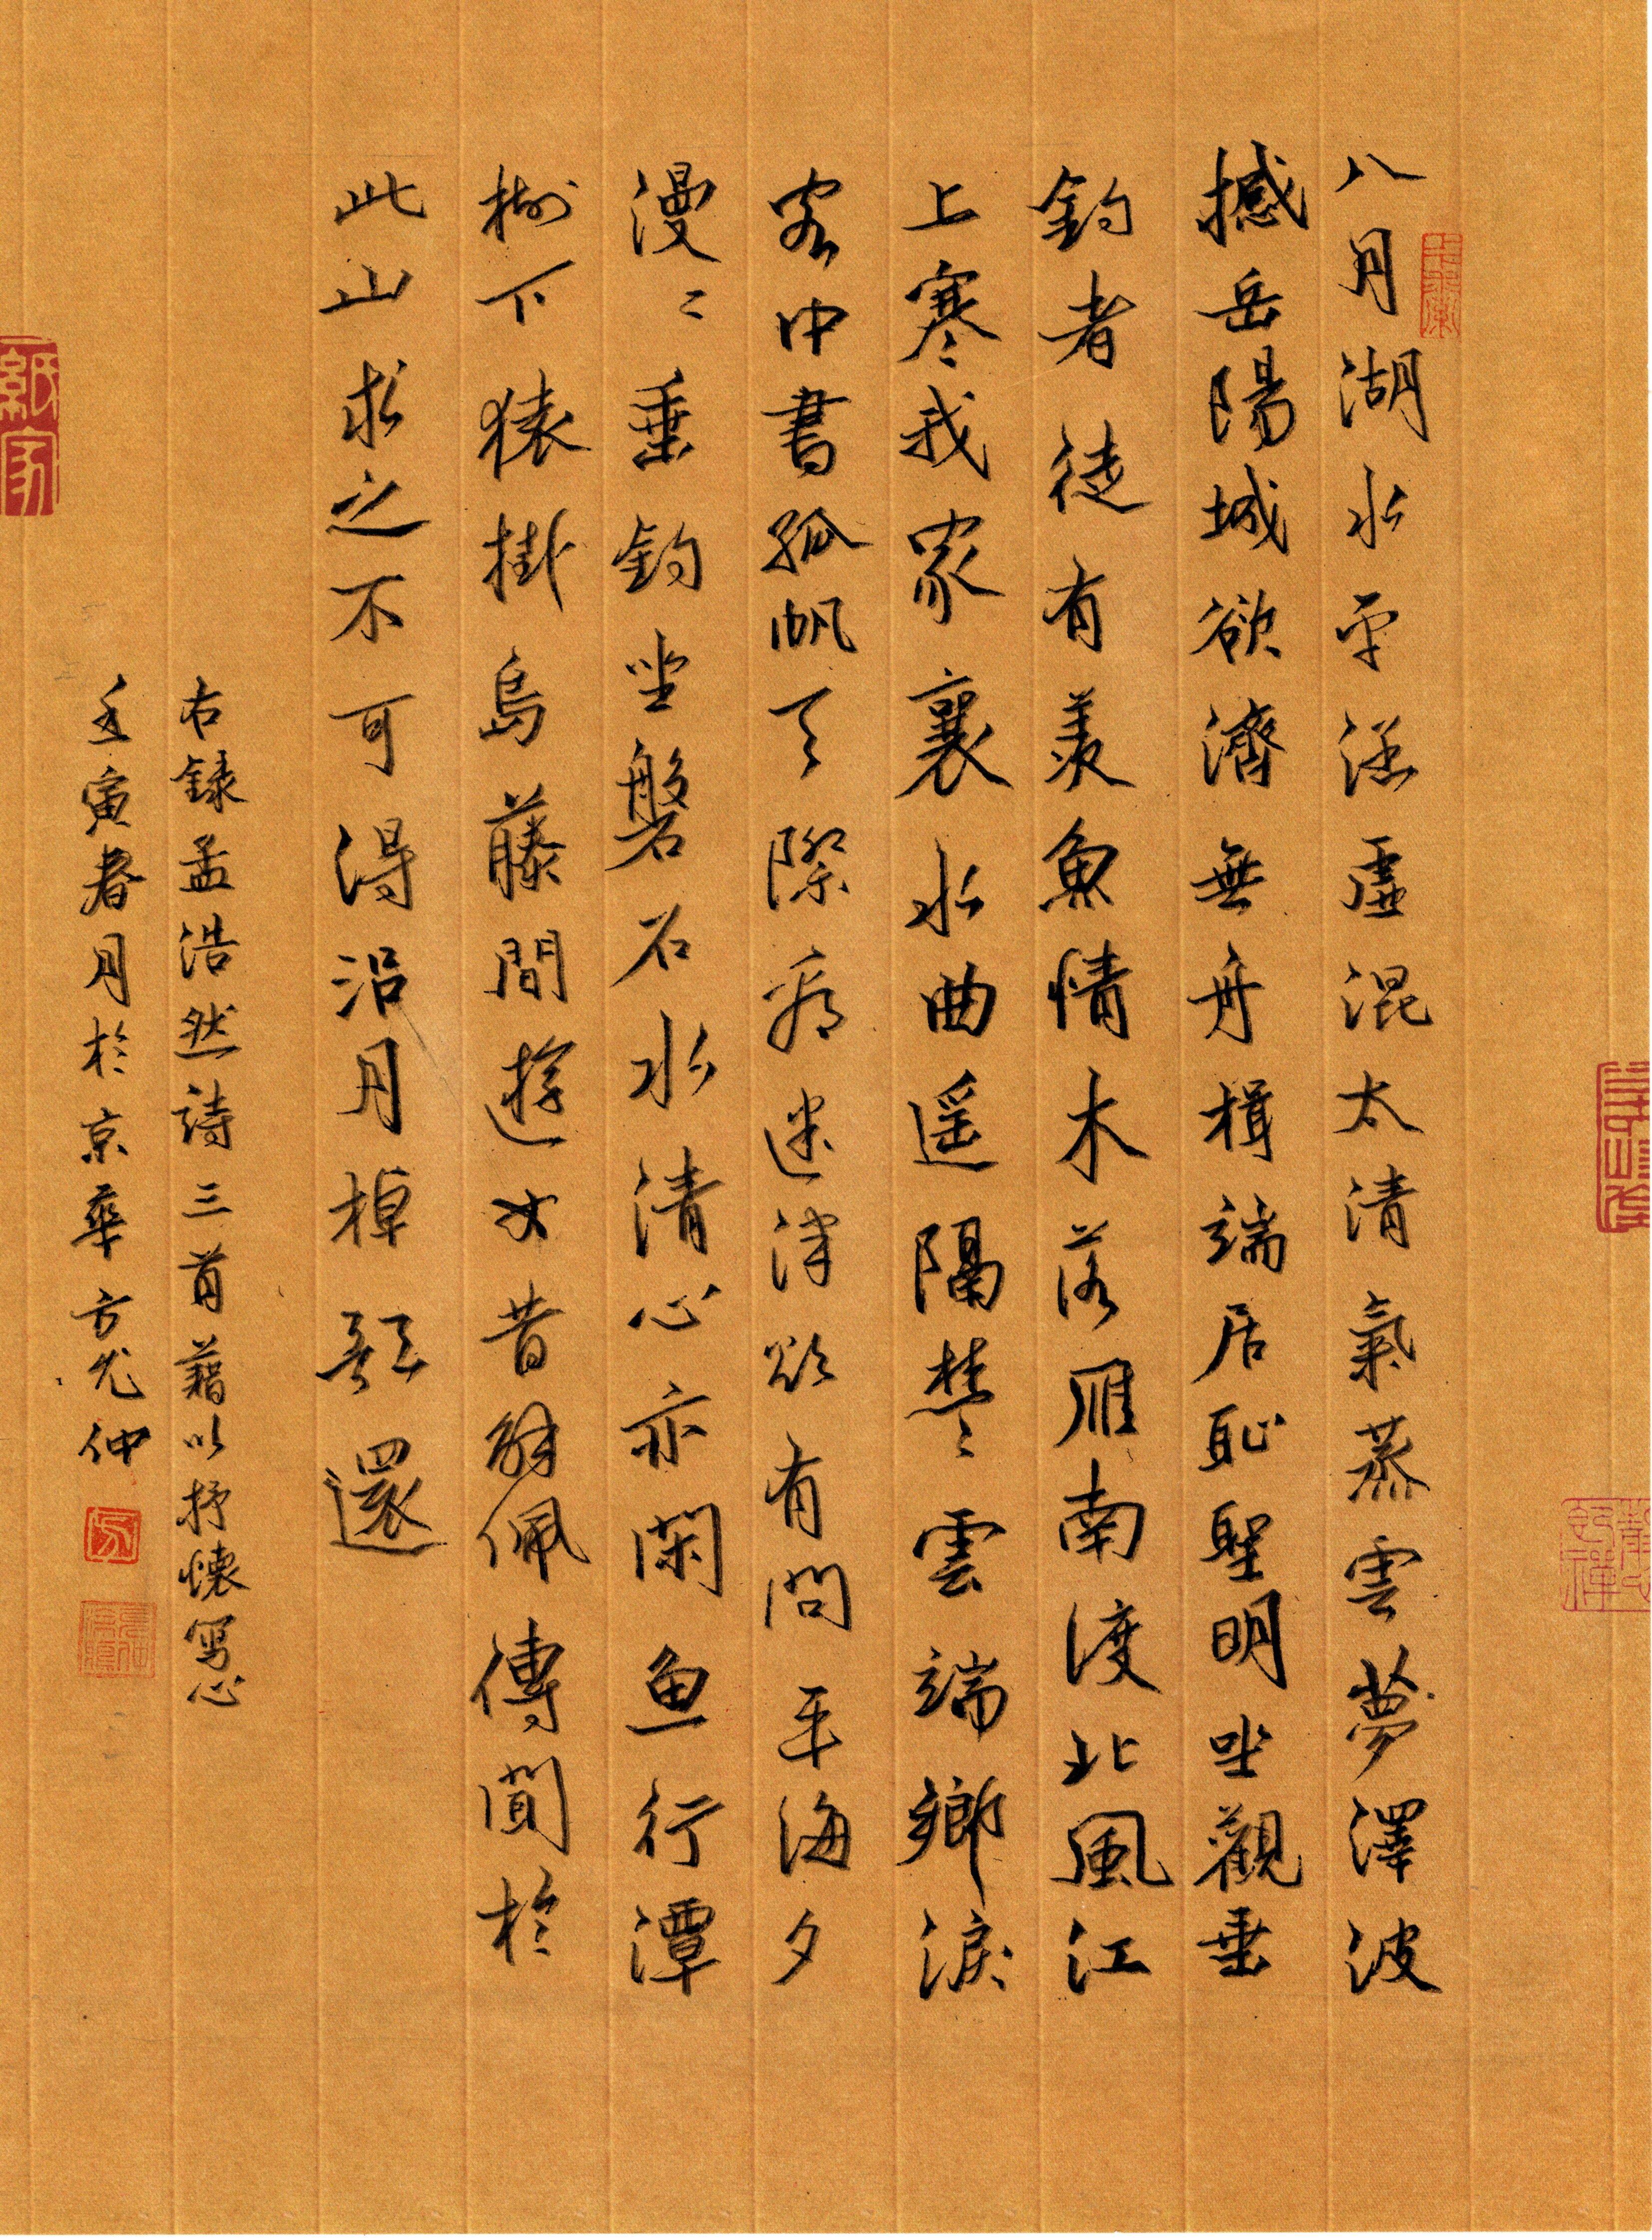 八月湖水平涵虛混太清氣蒸雲夢澤波
撼岳陽城欲濟無舟楫端居恥聖明坐觀垂
釣者徒有羨魚情木落雁南渡北風江
上寒我家襄水曲遥隔楚雲端鄉淚
客中書孤帆天際看迷津欲有問平海夕
漫漫垂釣坐磐石水清心亦閑魚行潭
樹下猿掛島藤間遊女昔解佩傳聞於
此山求之不可得沿月棹歌還
右録孟浩然詩三首藉以抒懷寫心
壬寅春月於京華方允仲